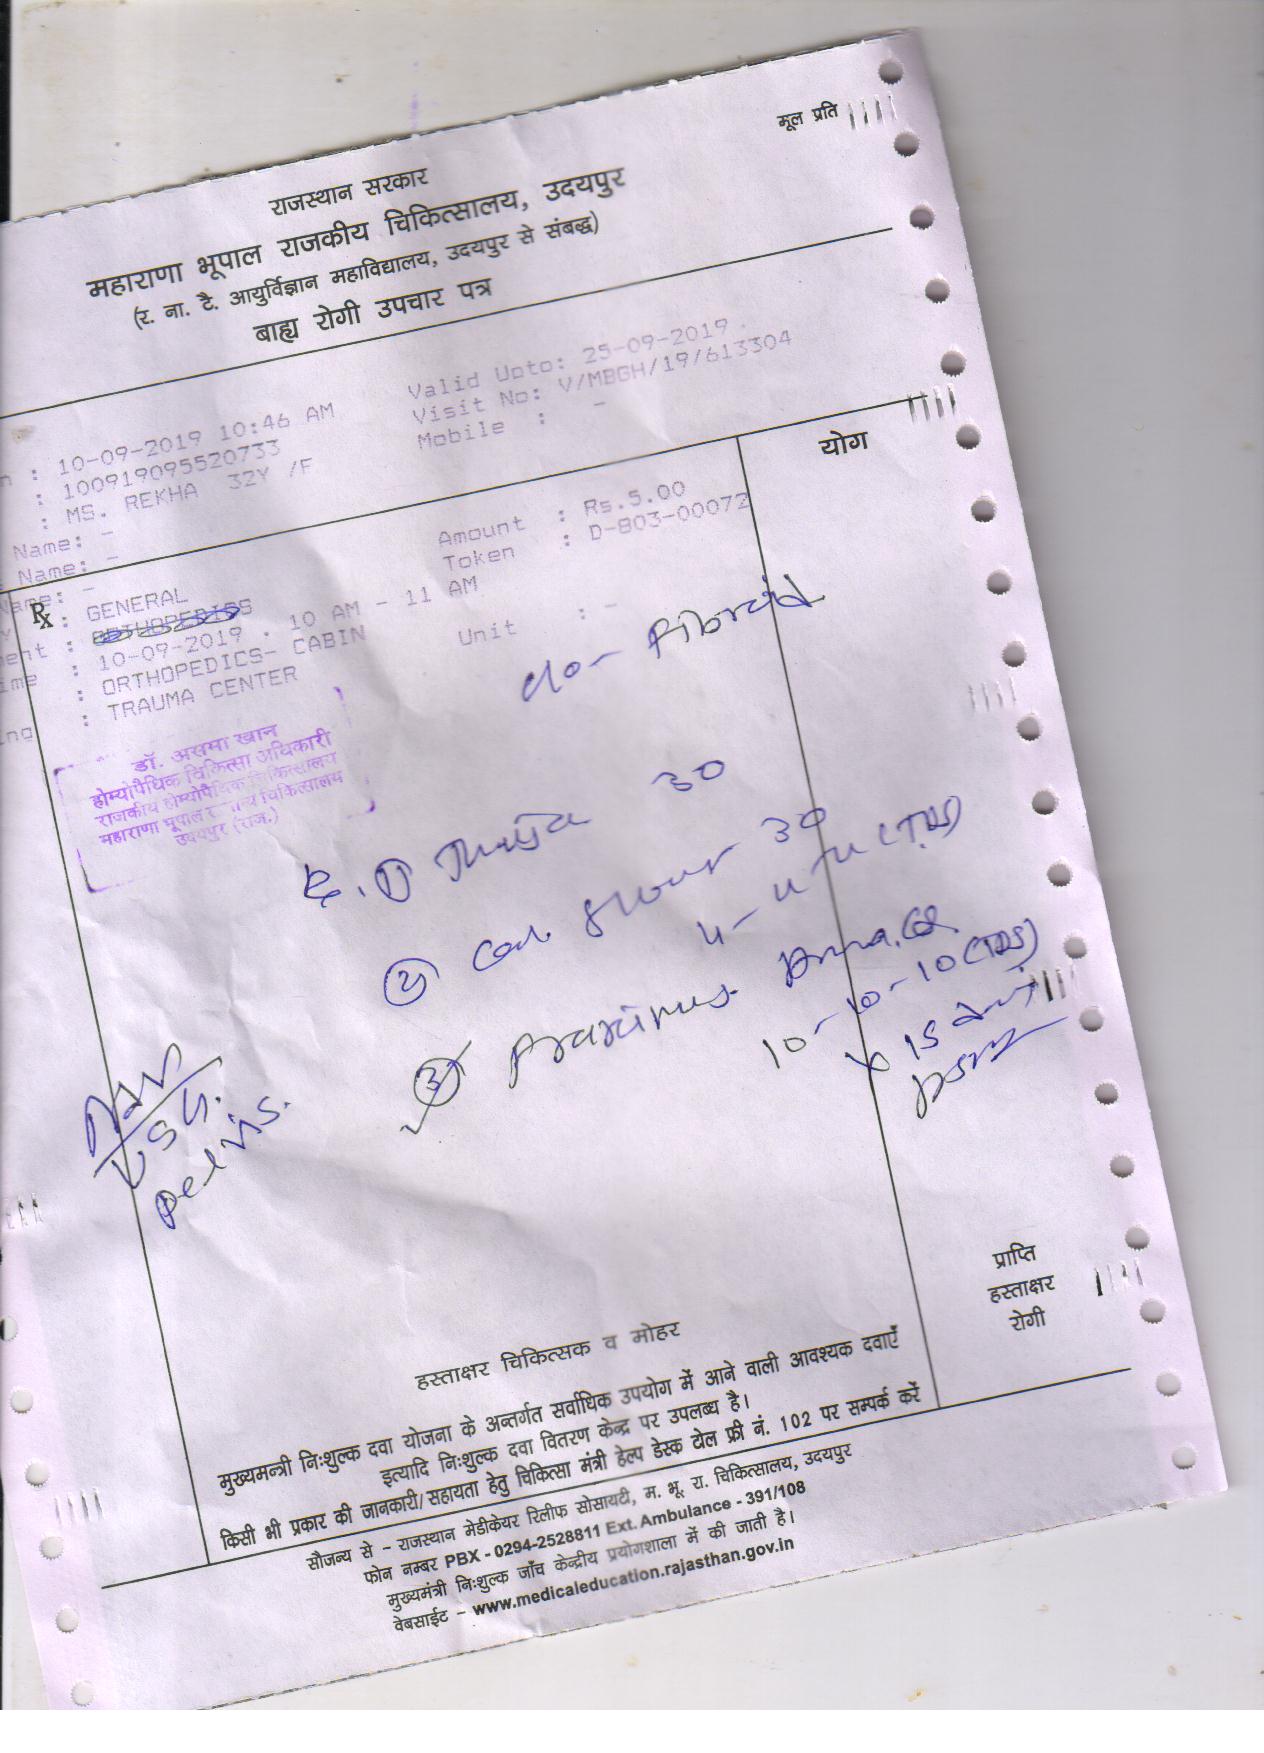 मूल प्रति
राजस्थान सरकार
महाराणा भूपाल राजकीय चिकित्सालय, उदयपुर
(र. ना. टै. आयुर्विज्ञान महाविद्यालय, उदयपुर से संबद्ध)
बाह्य रोगी उपचार पत्र
: 10-09-2019 10:46 AM Valid Upto: 25-09-2019
: 100919095520733 Visit No: V/MBGH/19/613304
: MS. REKHA 32Y /F Mobile : -
Name: -
Name: - Amount : Rs.5.00
Name: - Token : D-803-00072
Rx : GENERAL
: ORTHOPEDICS
: 10-09-2019 . 10 AM - 11 AM
: ORTHOPEDICS- CABIN Unit : -
: TRAUMA CENTER
योग
c/o- Fibroid
डॉ. असमा खान
होम्योपैथिक चिकित्सा अधिकारी
राजकीय होम्योपैथिक चिकित्सालय
महाराणा भूपाल चिकित्सालय
उदयपुर (राज.)
① Thuja 30
② 30
4-4-4 (TDS)
③ Fraxinus
10-10-10 (TDS)
x 15
Adv
USG.
pelvis.
प्राप्ति
हस्ताक्षर
रोगी
हस्ताक्षर चिकित्सक व मोहर
मुख्यमन्त्री निःशुल्क दवा योजना के अन्तर्गत सर्वाधिक उपयोग में आने वाली आवश्यक दवाएँ
इत्यादि निःशुल्क दवा वितरण केन्द्र पर उपलब्ध है।
किसी भी प्रकार की जानकारी/सहायता हेतु चिकित्सा मंत्री हेल्प डेस्क टोल फ्री नं. 102 पर सम्पर्क करें
सौजन्य से - राजस्थान मेडीकेयर रिलीफ सोसायटी, म. भू. रा. चिकित्सालय, उदयपुर
फोन नम्बर PBX - 0294-2528811 Ext. Ambulance - 391/108
मुख्यमंत्री निःशुल्क जाँच केन्द्रीय प्रयोगशाला में की जाती है।
वेबसाईट - www.medicaleducation.rajasthan.gov.in